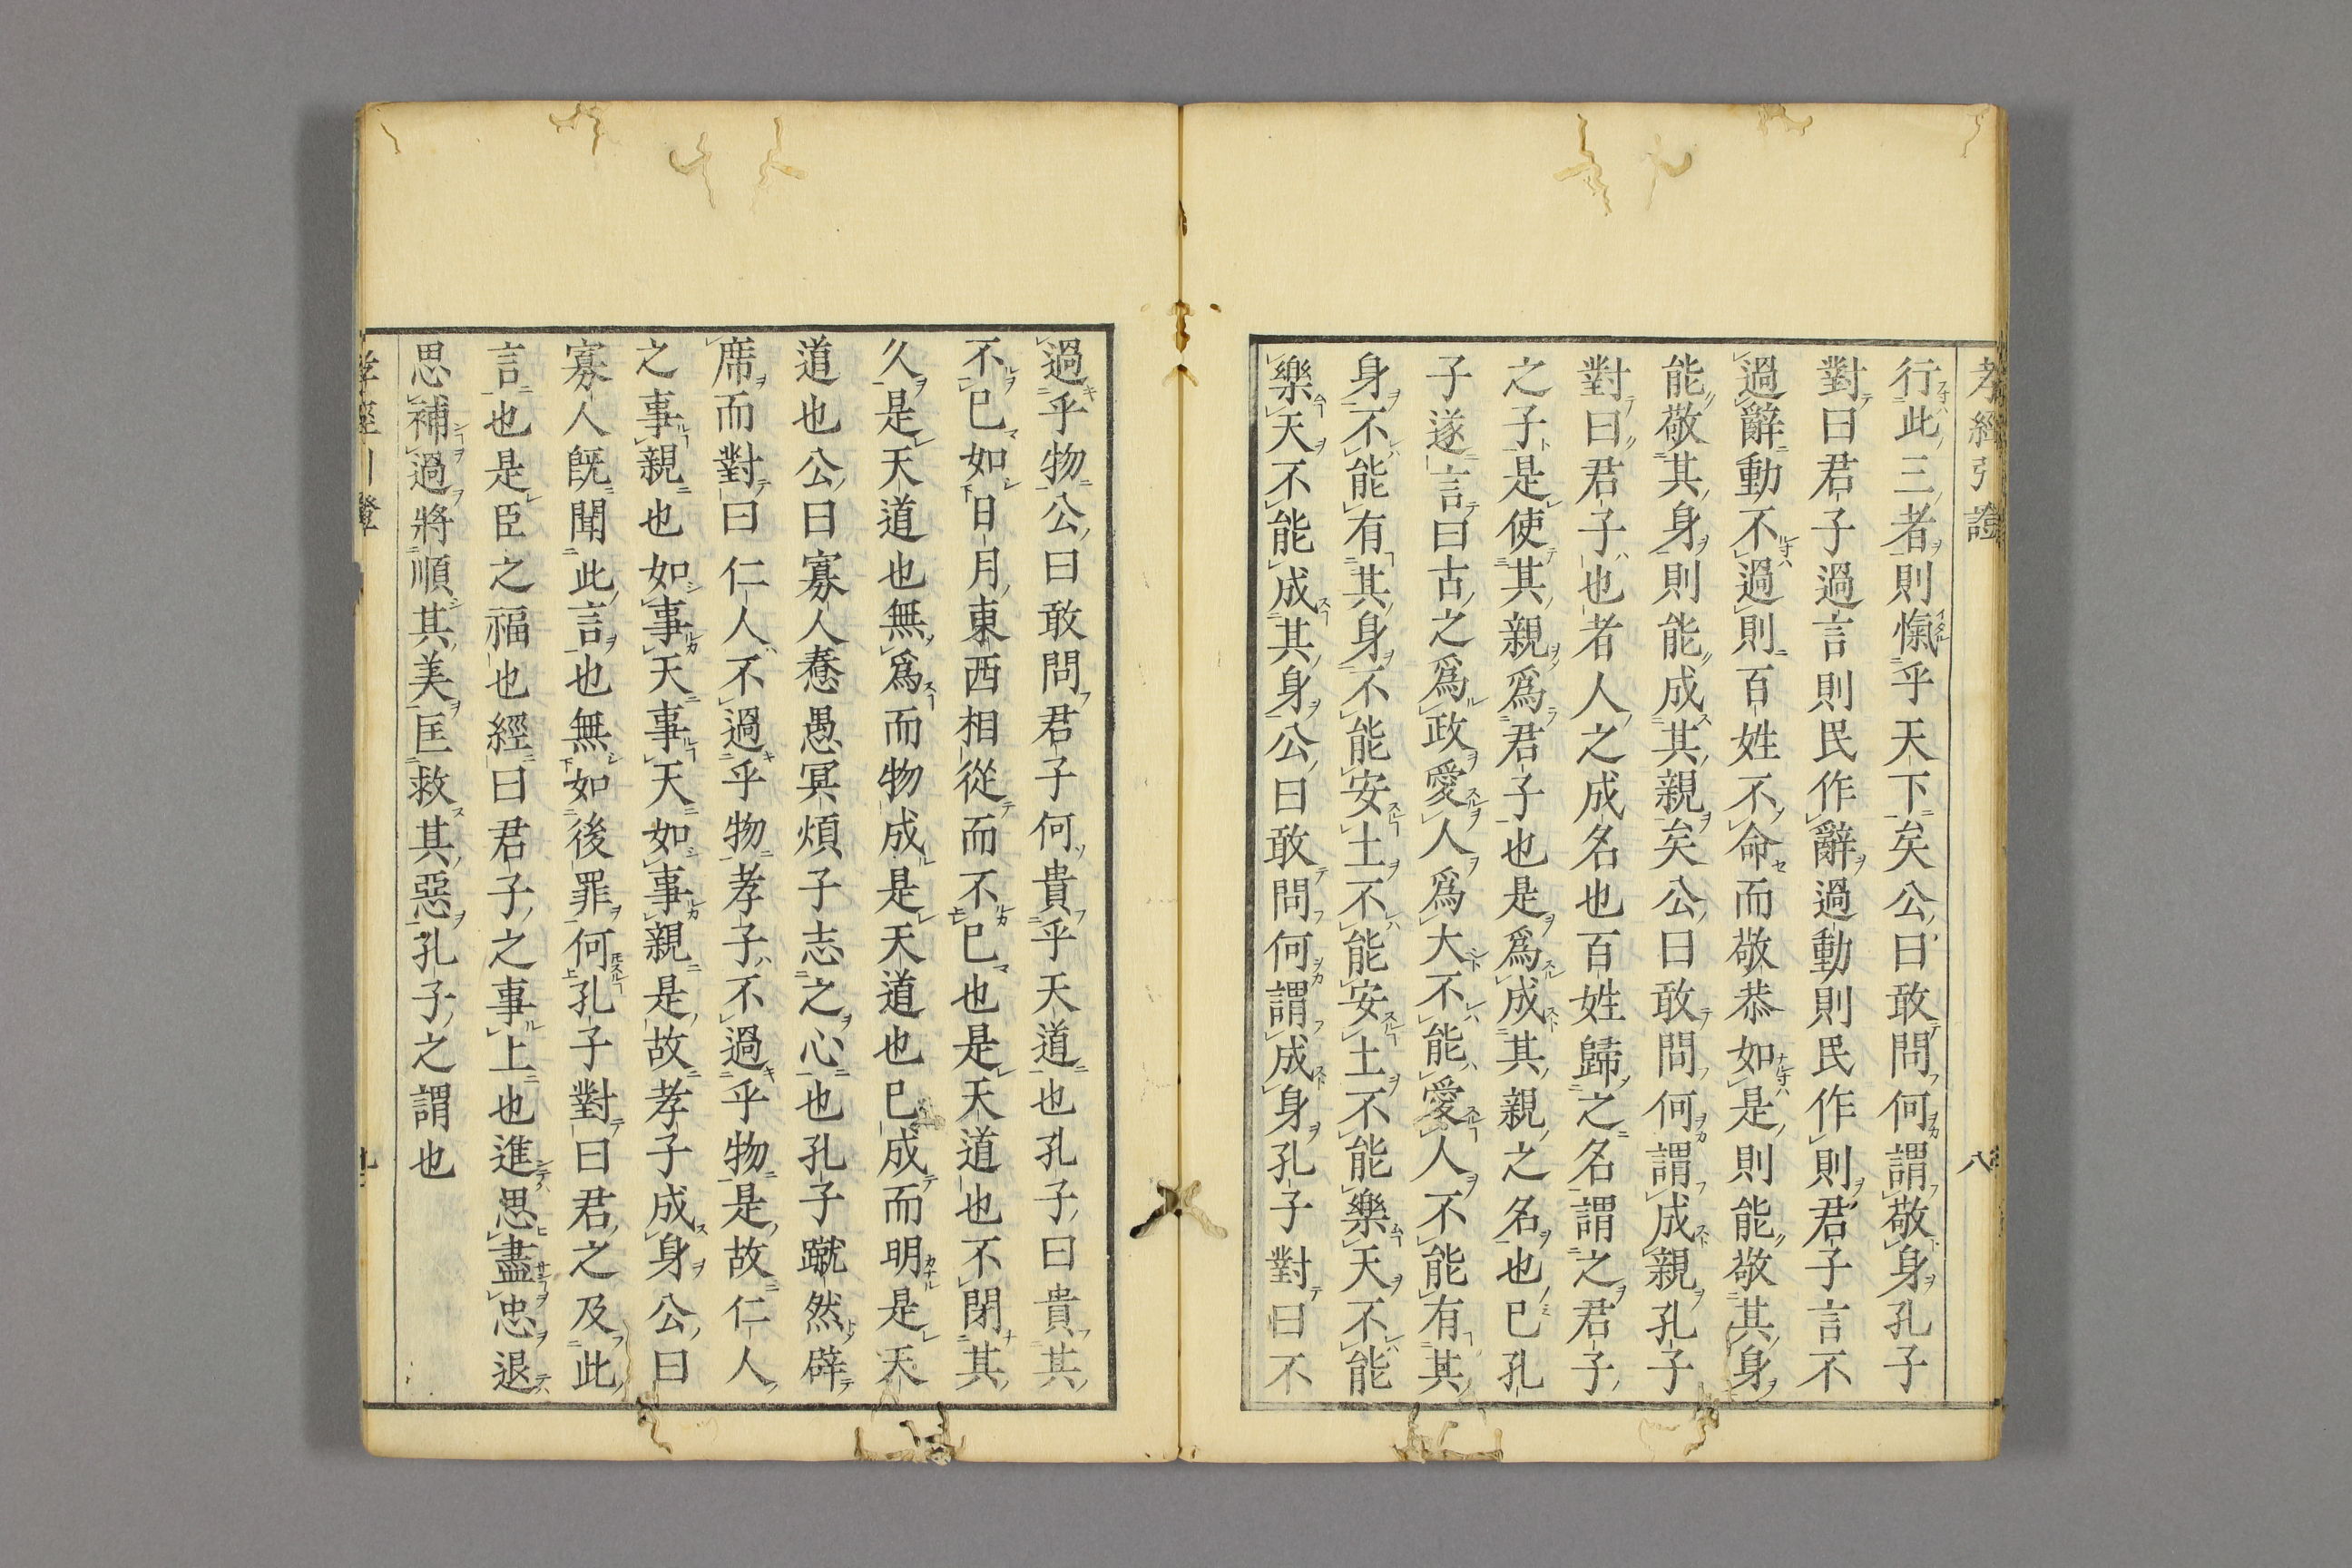 孝經引證　八
行此三者則愾乎天下矣公曰敢問何謂敬身孔子
對曰君子過言則民作辭過動則民作則君子言不
過辭動不過則百姓不命而敬恭如是則能敬其身
能敬其身則能成其親矣公曰敢問何謂成親孔子
對曰君子也者人之成名也百姓歸之名謂之君子
之子是使其親爲君子也是爲成其親之名也已孔
子遂言曰古之爲政愛人爲大不能愛人不能有其
身不能有其身不能安土不能安土不能樂天不能
樂天不能成其身公曰敢問何謂成身孔子對曰不
過乎物公曰敢問君子何貴乎天道也孔子曰貴其
不已如日月東西相從而不已也是天道也不閉其
久是天道也無爲而物成是天道也已成而明是天
道也公曰寡人惷愚冥煩子志之心也孔子蹴然辟
席而對曰仁人不過乎物孝子不過乎物是故仁人
之事親也如事天事天如事親是故孝子成身公曰
寡人既聞此言也無如後罪何孔子對曰君之及此
言也是臣之福也經曰君子之事上也進思盡忠退
思補過將順其美匡救其惡孔子之謂也
孝經引證